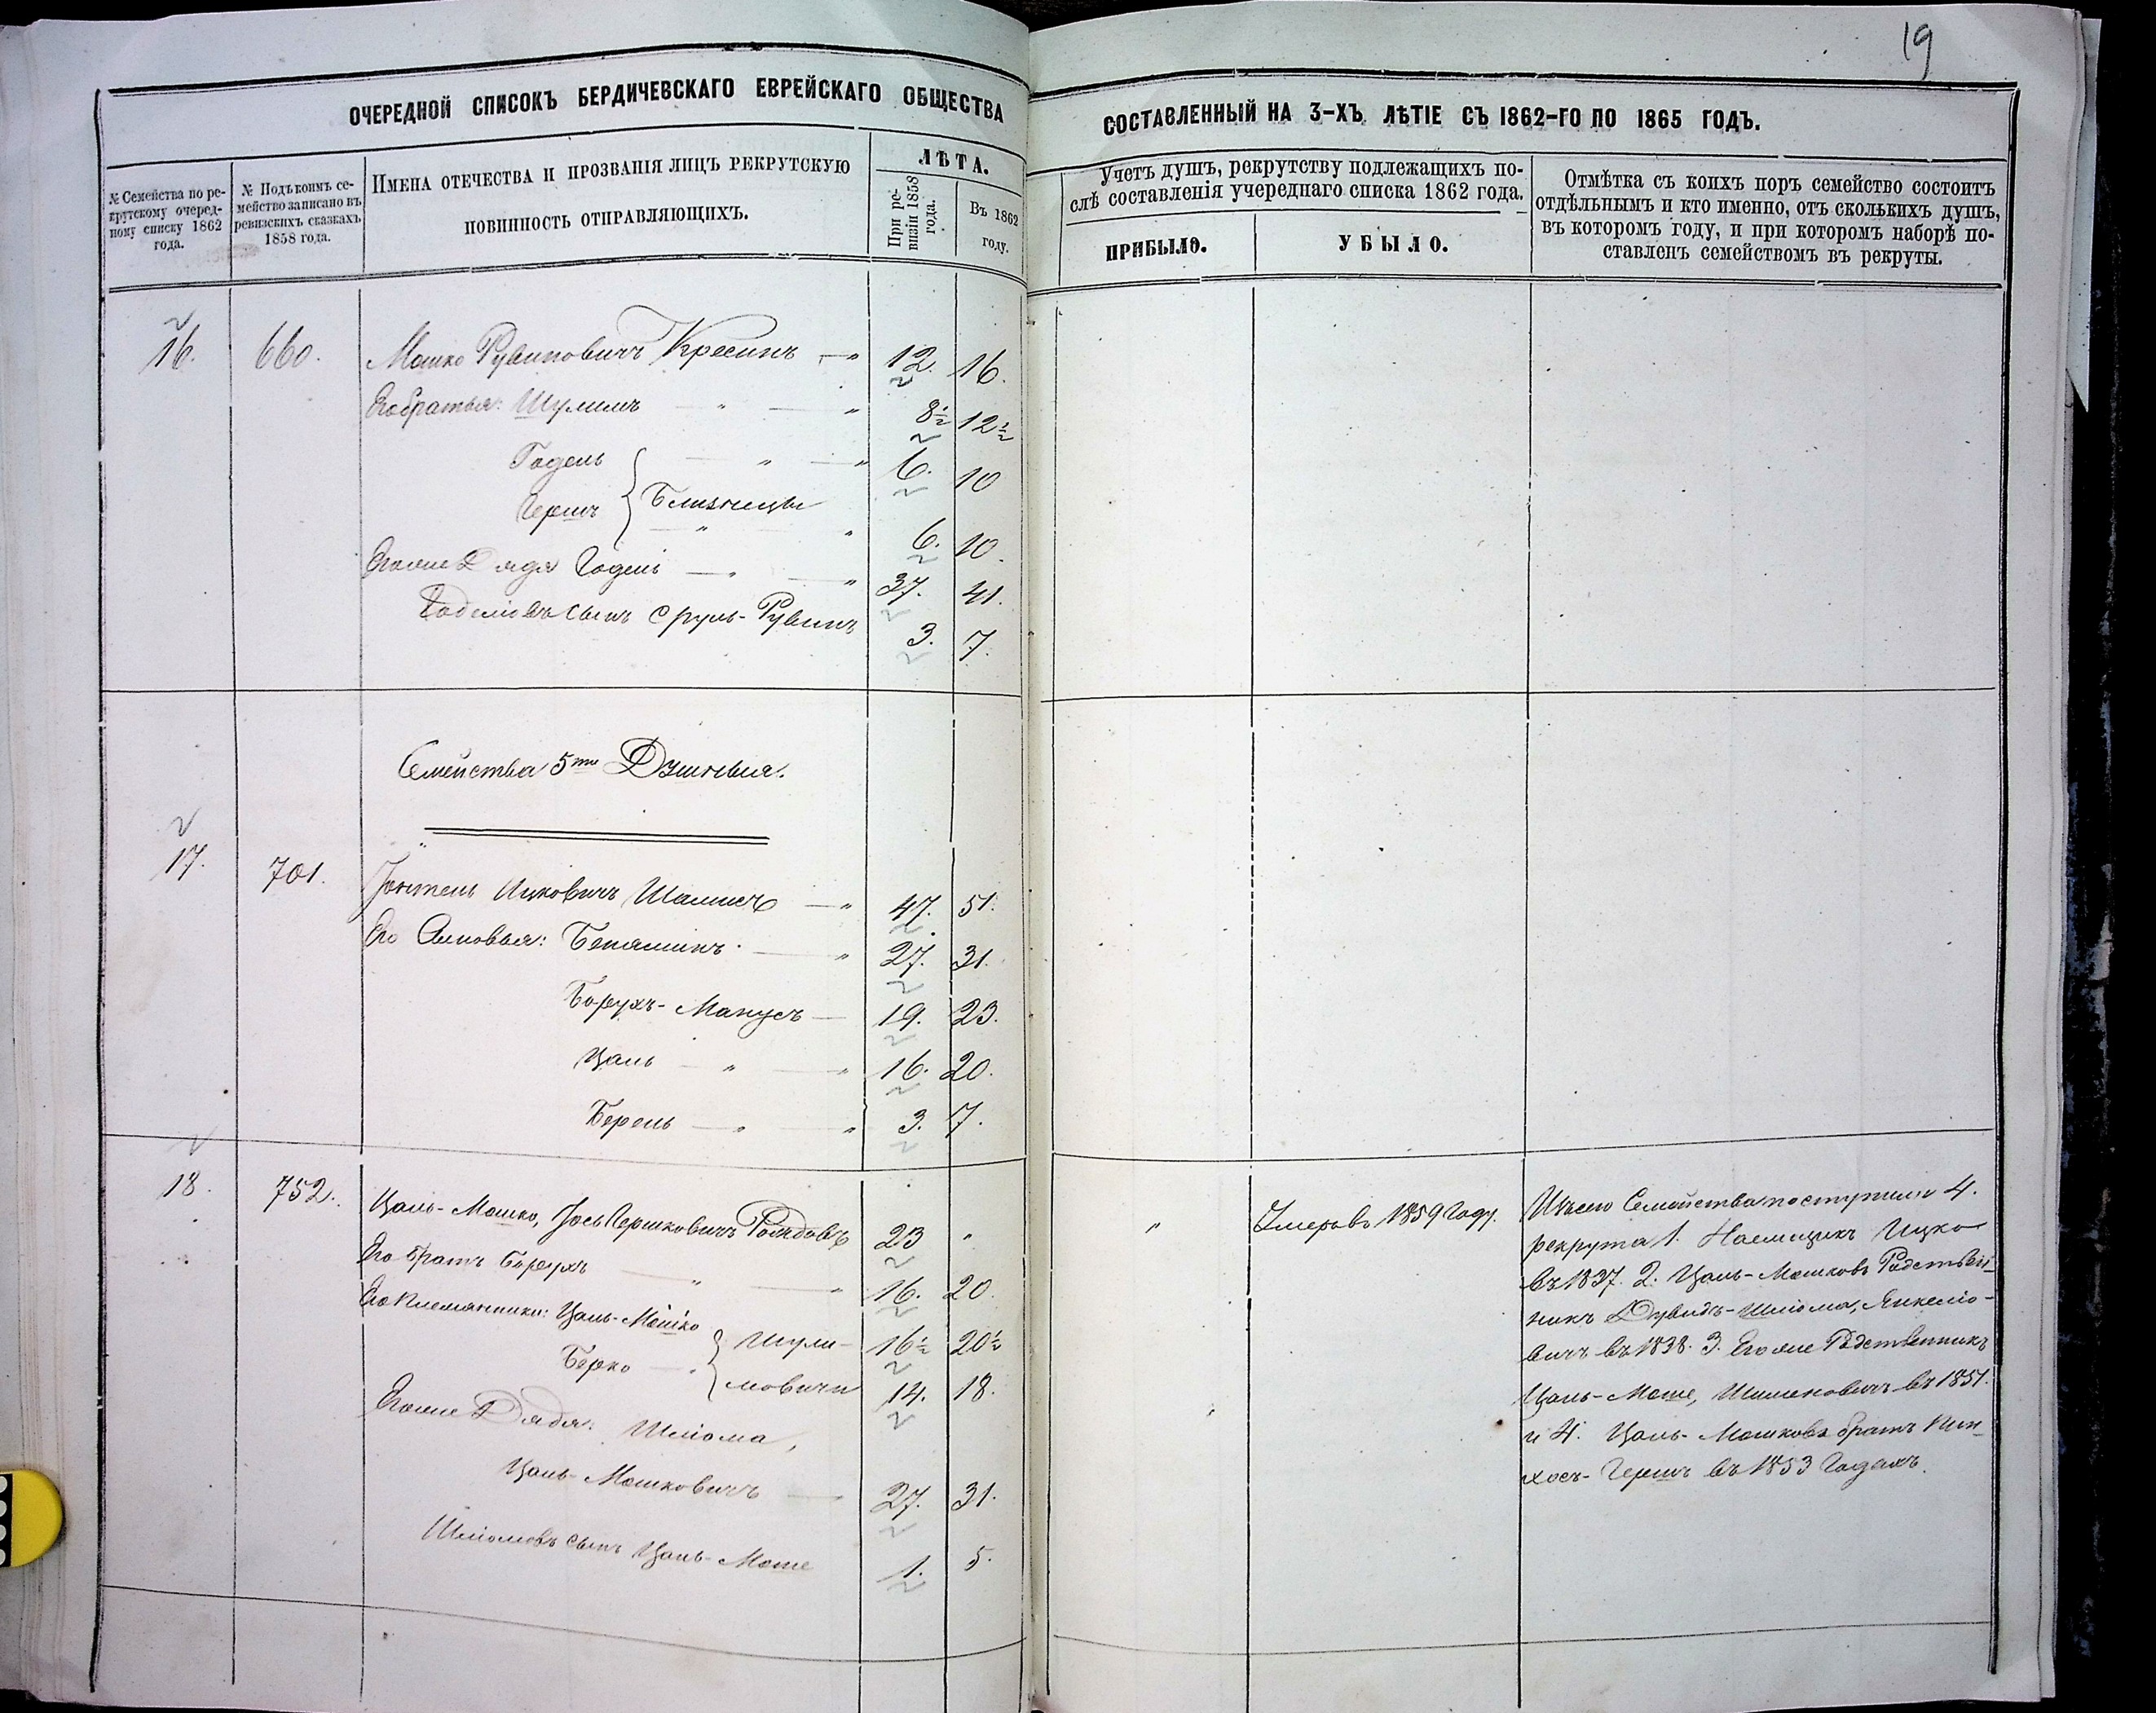 19
ОЧЕРЕДНОЙ СПИСОКЪ БЕРДИЧЕВСКАГО ЕВРЕЙСКАГО ОБЩЕСТВА
СОСТАВЛЕННЫЙ НА 3-ХЪ ЛѢТІЕ СЪ 1862-ГО ПО 1865 ГОДЪ.
№ Семейства по ре-
крутскому очеред-
ному списку 1862
года.
№ Подъ коимъ се-
мейство записано въ
ревизскихъ сказкахъ
1858 года.
Имена отечества и прозванія лицъ рекрутскую
повинность отправляющихъ.
ЛѢТА.
При ре-
визіи 1858
года.
Въ 1862
году.
Учетъ душъ, рекрутству подлежащихъ по-
слѣ составленія учереднаго списка 1862 года.
ПРИБЫЛО.
УБЫЛО.
Отмѣтка съ коихъ поръ семейство состоитъ
отдѣльнымъ и кто именно, отъ сколькихъ душъ,
въ которомъ году, и при которомъ наборѣ по-
ставленъ семействомъ въ рекруты.
16. 660. Мошко Рувиновичъ Кресинъ — " 12. 16.
Его братья: Шулимъ — " — " 8½ 12½
Годель — " — " 6. 10
Гершъ Близнецы " " 6. 10.
Его же Дядя Годель — " — " 37. 41.
Годеліовъ сынъ Сруль-Рувинъ 3. 7.
Семейства 5ти Душныя.
17. 701. Ицковичъ — " 47. 51.
Его Сыновья: Беняминъ — " 27. 31.
Борухъ-Манусъ — 19. 23.
Цаль — " — " 16. 20.
Берель — " — " 3. 7.
18. 752. Цаль-Мошко, Іось Гершковичъ 23 "
Его братъ Борухъ — " — " 16. 20.
Его Племянники: Цаль-Мошко Шули- 16½ 20½
Берко — " мовичи 14. 18.
Его же Дядя: Шліома,
Цаль-Мошковичъ — 27. 31.
Шліомовъ сынъ Цаль-Моше 1. 5.
" Умеръ въ 1859 Году.
Семейства поступили 4.
рекрута 1. Наемщикъ Ицко
въ 1837. 2. Цаль-Мошковъ Родствен-
никъ Дувидъ-Шліома, Янкеліо-
вичъ въ 1838. 3. Его же Родственникъ
Цаль-Моше, Шимоновичъ въ 1851.
и 4. Цаль-Мошковъ братъ Пин-
хосъ-Гершъ въ 1853 Годахъ.